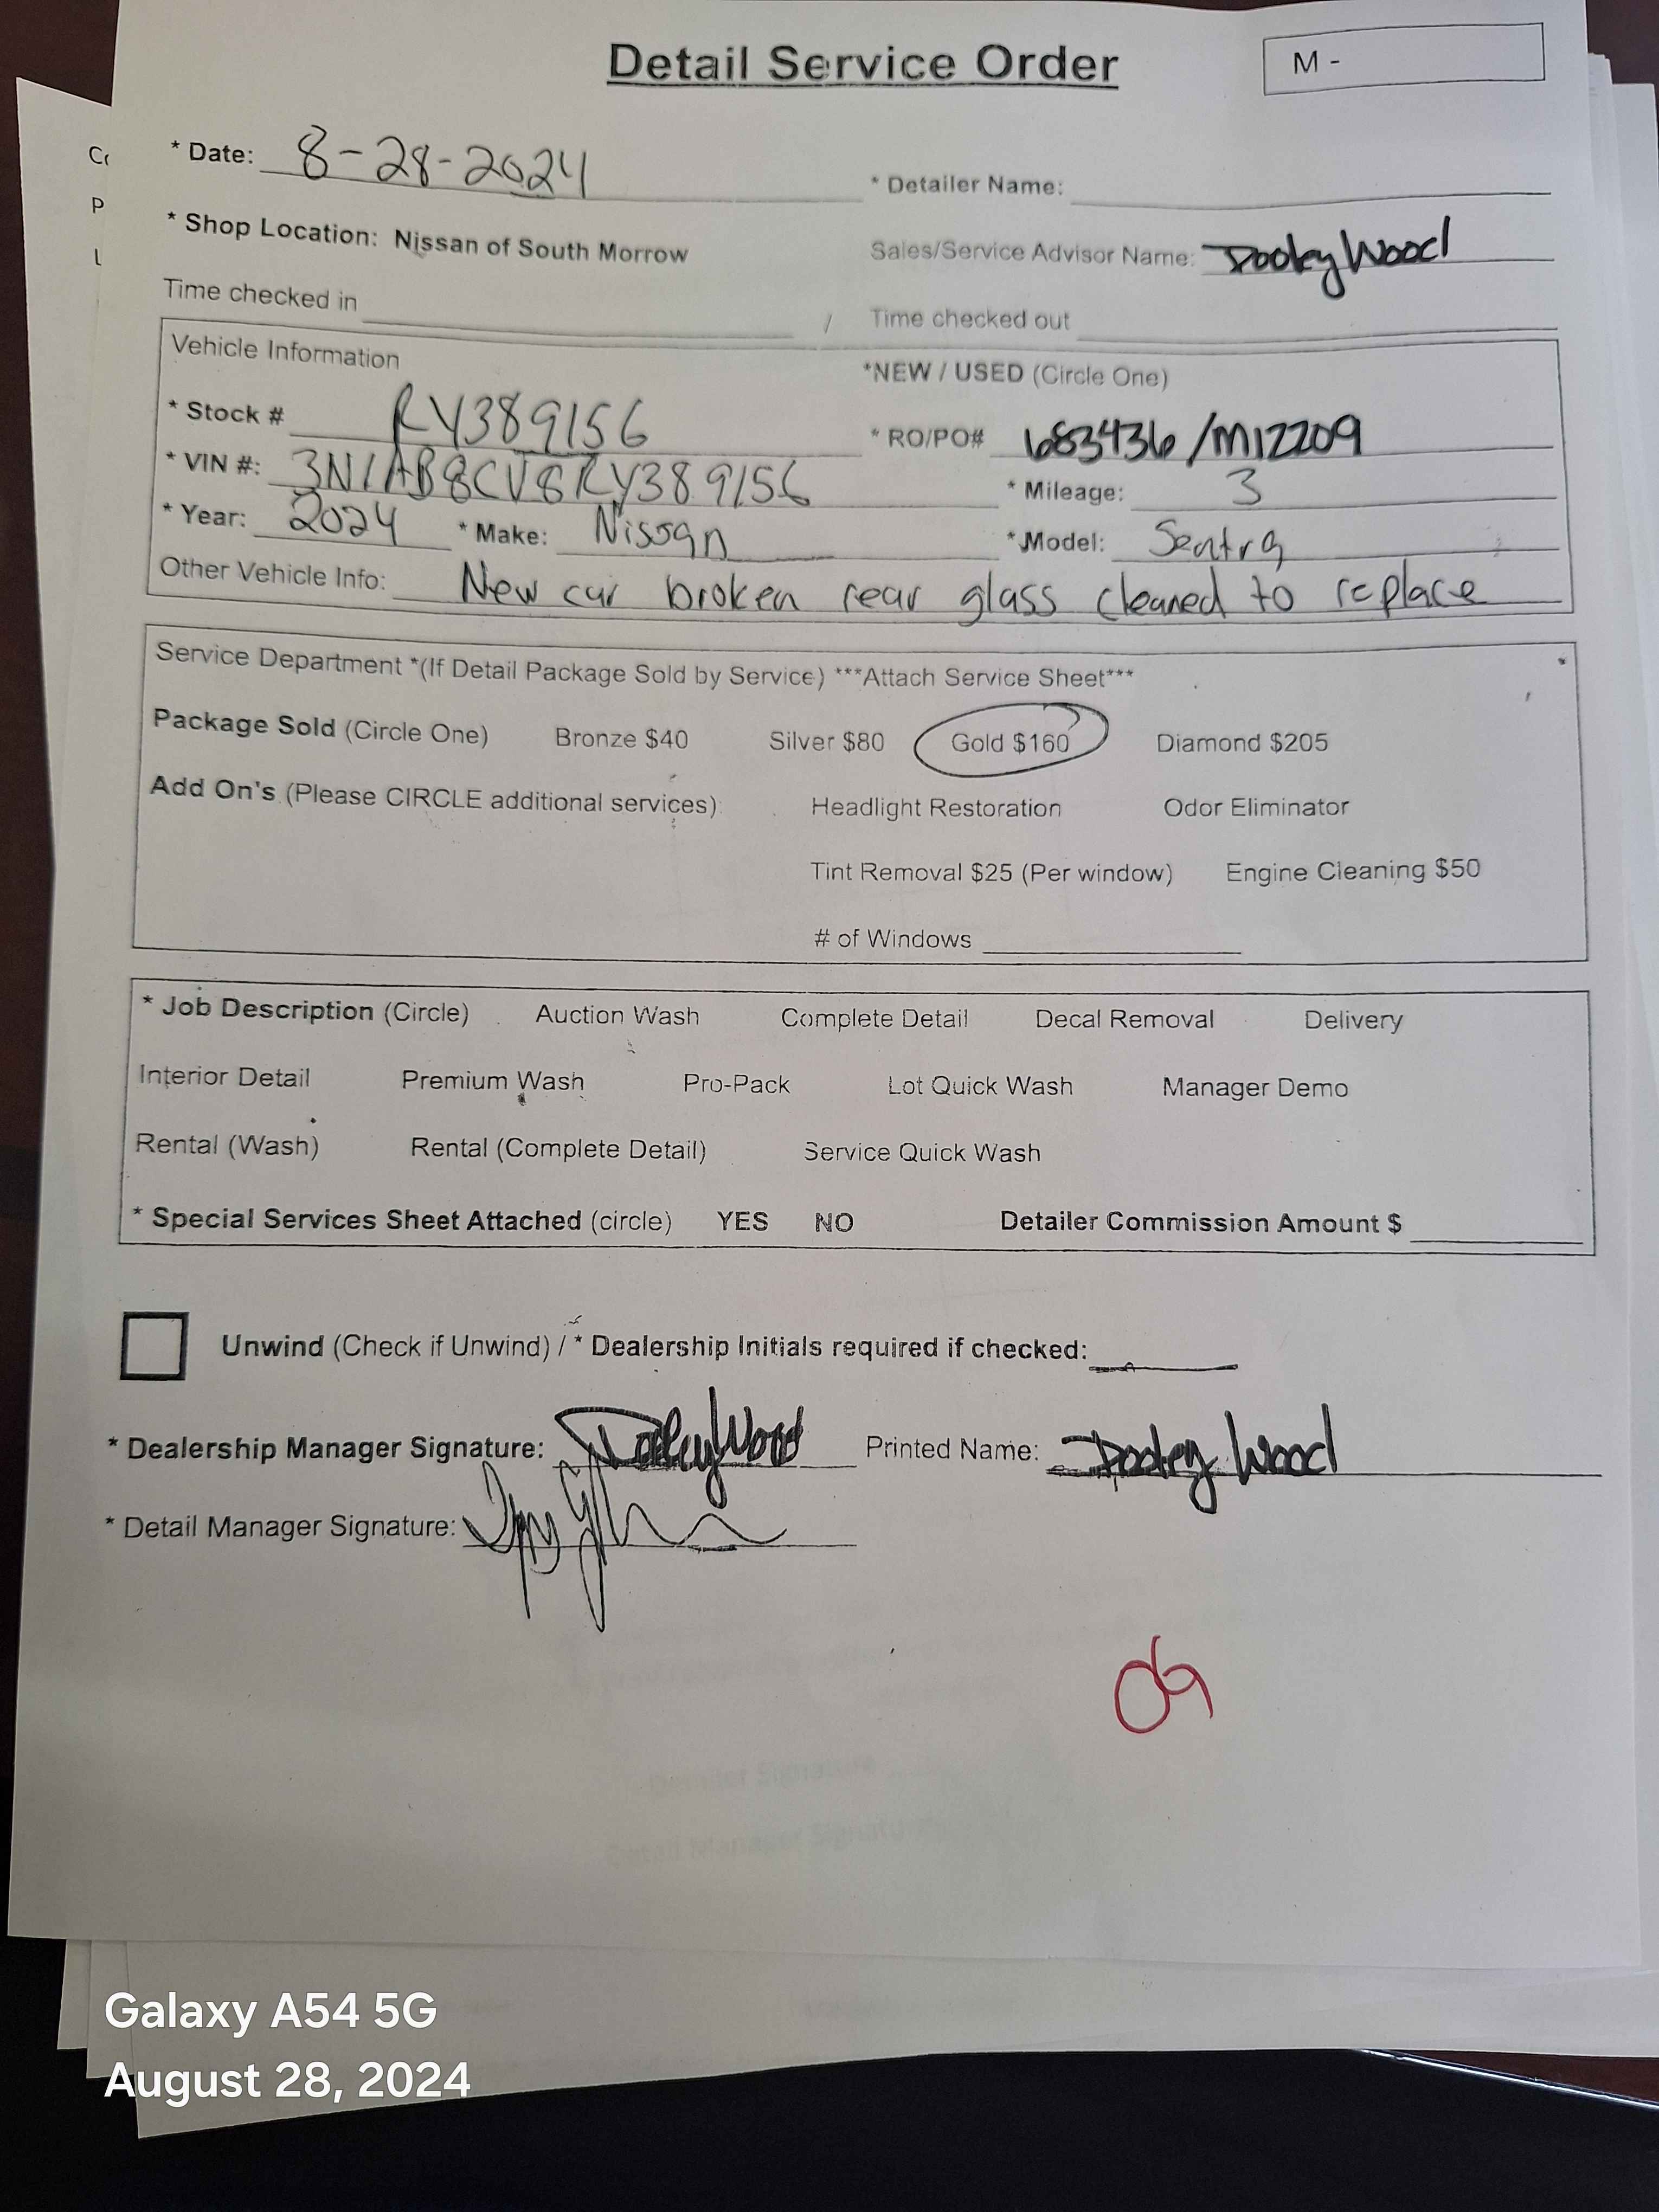 Detail Service Order
M -
* Date: 8-28-2024
* Detailer Name:
* Shop Location: Nissan of South Morrow
Sales/Service Advisor Name: Dooley Wood
Time checked in / Time checked out
Vehicle Information
*NEW / USED (Circle One)
* Stock # RY389156
* RO/PO# 683436/M12209
* VIN #: 3N1AB8CV8RY389156
* Mileage: 3
* Year: 2024 * Make: Nissan *Model: Sentra
Other Vehicle Info: New car broken rear glass cleaned to replace
Service Department *(If Detail Package Sold by Service) ***Attach Service Sheet***
Package Sold (Circle One) Bronze $40 Silver $80 Gold $160 Diamond $205
Add On's (Please CIRCLE additional services) Headlight Restoration Odor Eliminator
Tint Removal $25 (Per window) Engine Cleaning $50
# of Windows
* Job Description (Circle) Auction Wash Complete Detail Decal Removal Delivery
Interior Detail Premium Wash Pro-Pack Lot Quick Wash Manager Demo
Rental (Wash) Rental (Complete Detail) Service Quick Wash
* Special Services Sheet Attached (circle) YES NO Detailer Commission Amount $
Unwind (Check if Unwind) / * Dealership Initials required if checked:
* Dealership Manager Signature: Dooley Wood Printed Name: Dooley Wood
* Detail Manager Signature:
Galaxy A54 5G
August 28, 2024